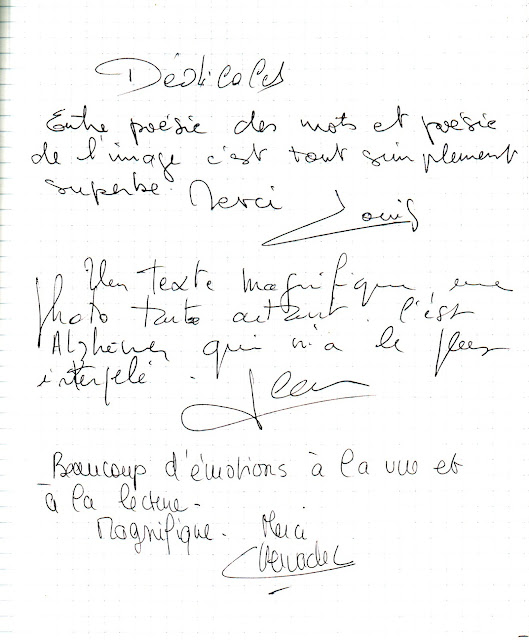 Dédicaces
Entre poésie des mots et poésie
de l'image c'est tout simplement
superbe. Merci
Louis
Un texte magnifique une
photo tout autant. C'est
Alzheimer qui m'a le plus
interpelé.
Jean
Beaucoup d'émotions à la vue et
à la lecture.
Magnifique. Merci